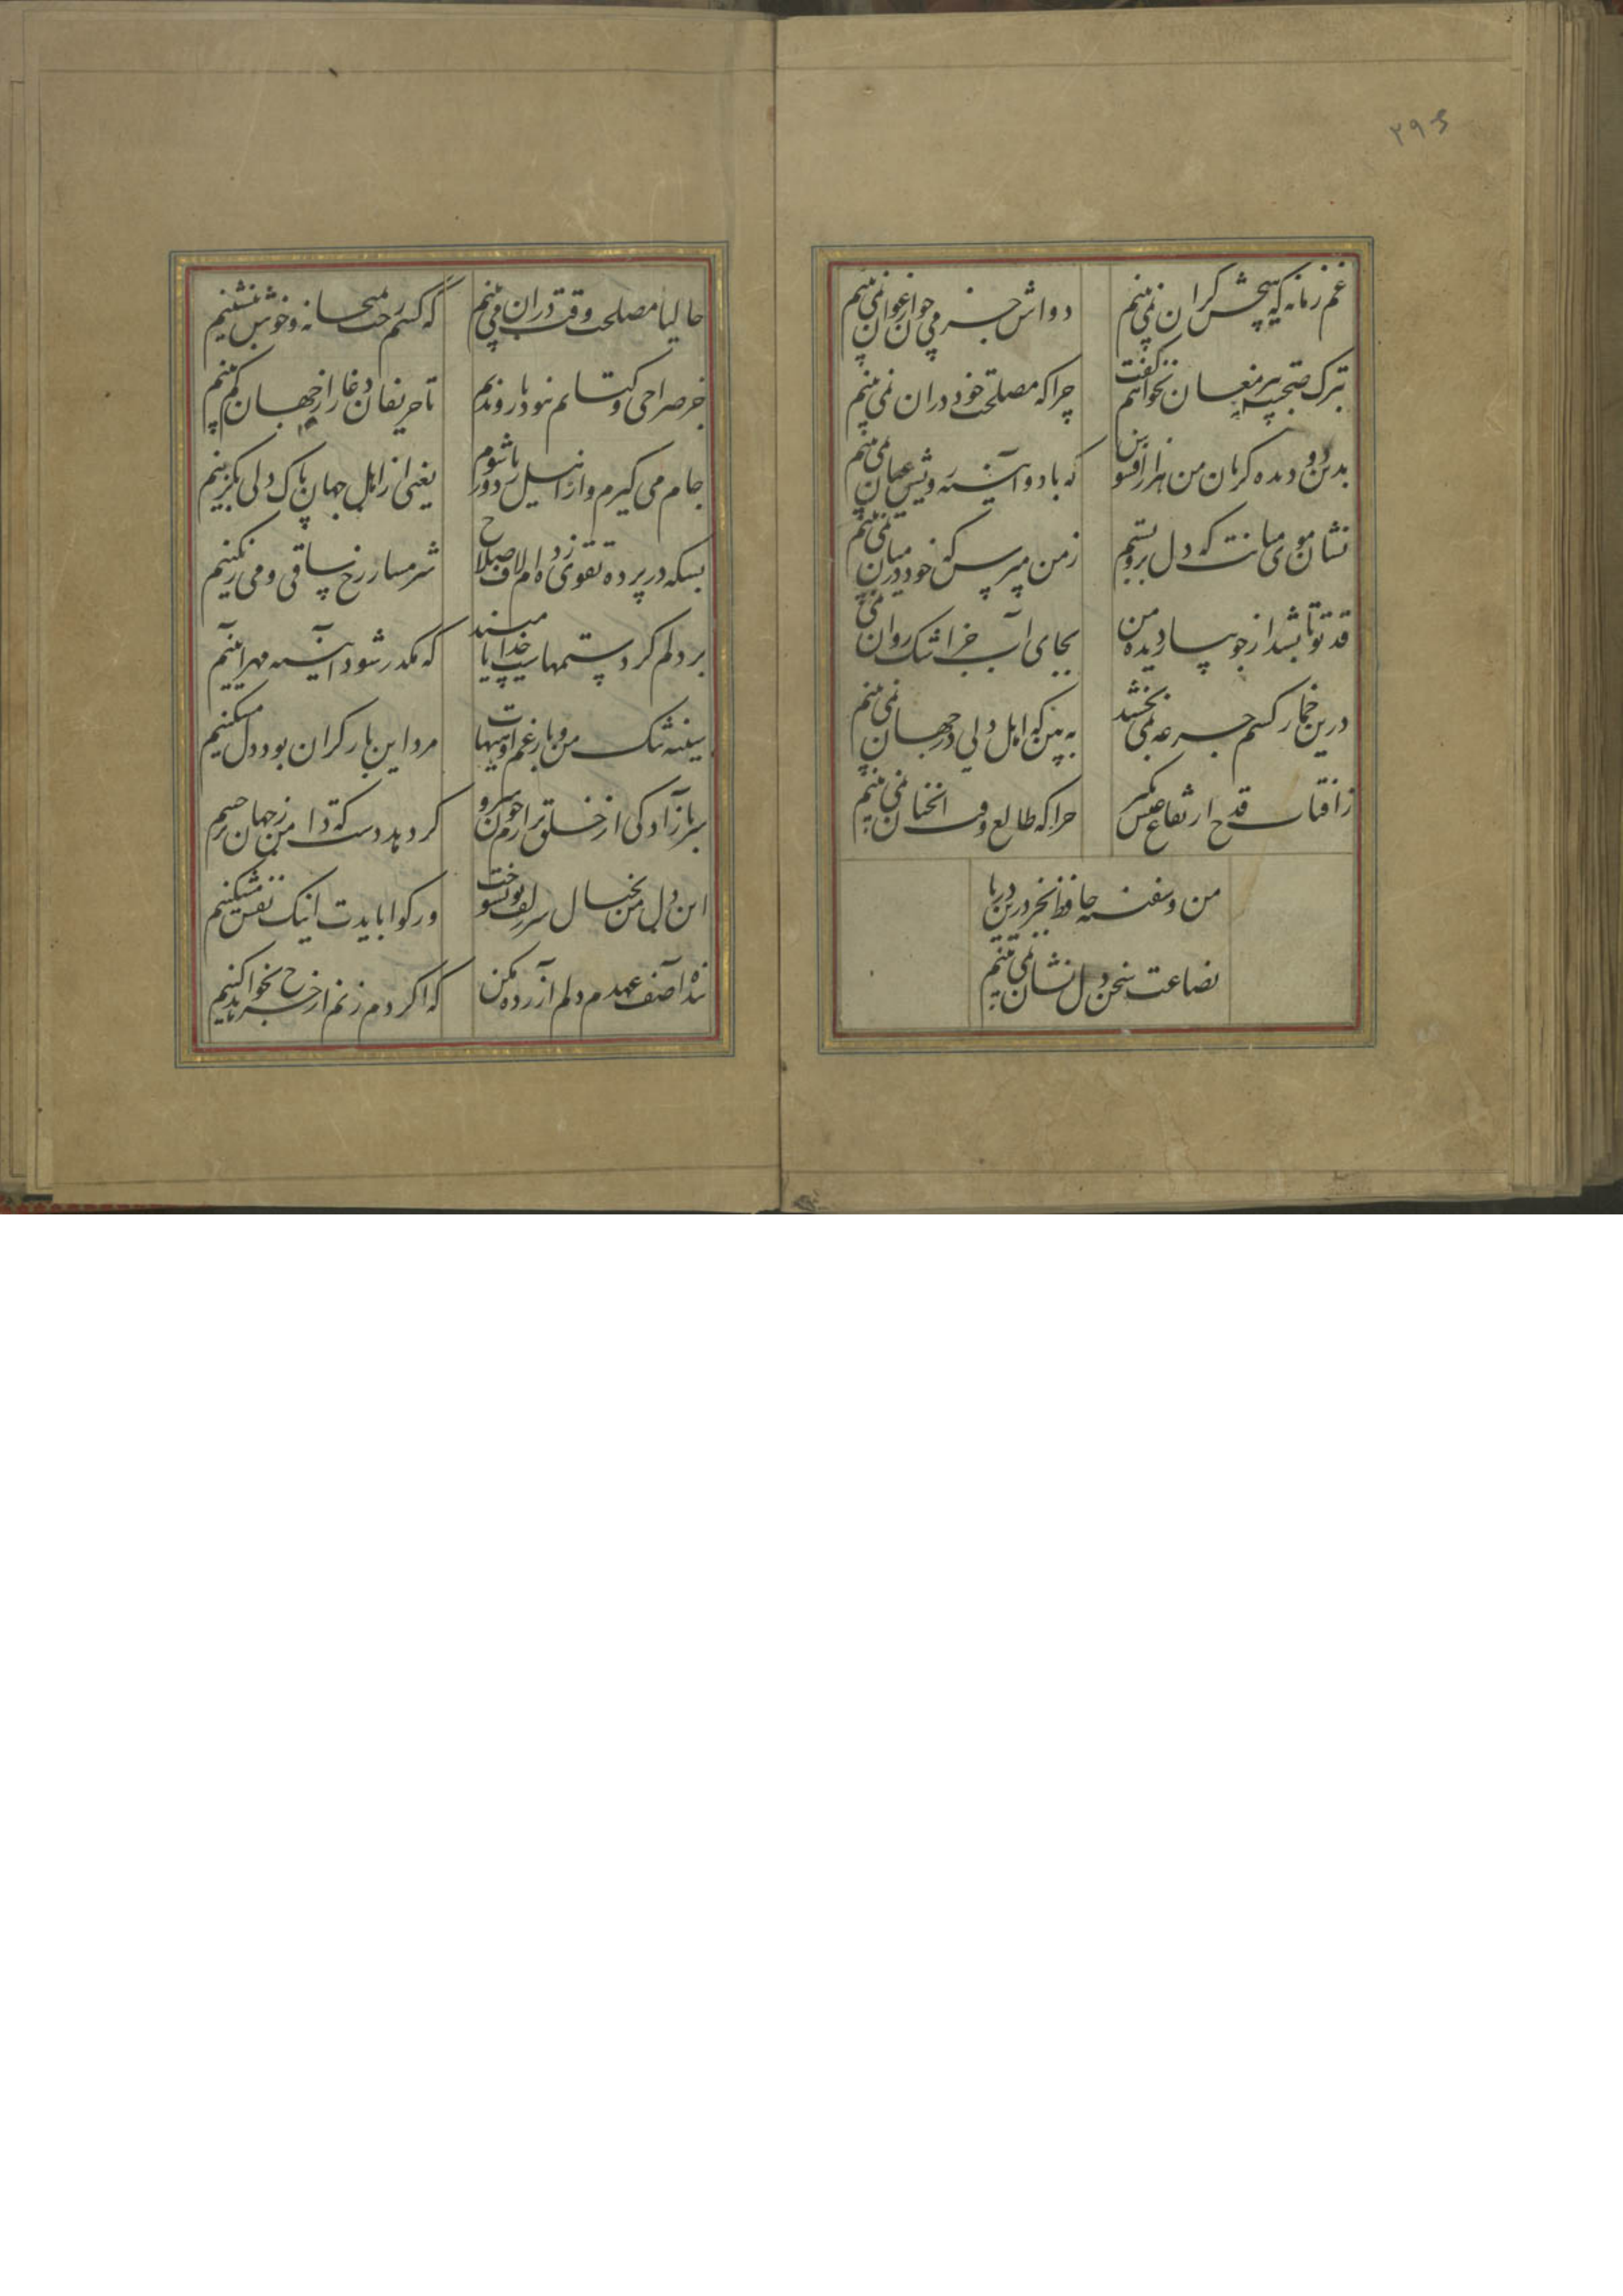 ۲۹۵
غم زمانه که هیچش کران نمی بینم
دواش جز می چون ارغوان نمی بینم
بترک صحبت پیر مغان نخواهم گفت
چرا که مصلحت خود در ان نمی بینم
بدین دو دیده گریان من هزار افسوس
که با دو آینه رویش عیان نمی بینم
نشان موی میانت که دل برو بستم
ز من مپرس که خود در میان نمی بینم
قد تو تا بشد از جویبار دیده من
بجای سرو جز آب روان نمی بینم
درین خمار کسم جرعه نمی بخشد
ببین که اهل دلی در جهان نمی بینم
ز آفتاب قدح ارتفاع عیش بگیر
چرا که طالع وقت انچنان نمی بینم
من و سفینه حافظ که جز درین دریا
بضاعت سخن دل نشان نمی بینم
حالیا مصلحت وقت در ان می بینم
که کشم رخت بمیخانه و خوش بنشینم
جز صراحی و کتابم نبود یار و ندیم
تا حریفان دغا را ز جهان کم بینم
جام می گیرم و از اهل ریا دور شوم
یعنی از اهل جهان پاک دلی بگزینم
بسکه در پرده تقوی زده ام لاف صلاح
شرمسار رخ ساقی و می رنگینم
بر دلم گرد ستمهاست خدایا مپسند
که مکدر شود آینه مهر آیینم
سینه تنگ من و بار غم او هیهات
مرد این بار گران بود دل مسکینم
سر بازادگی از خلق برارم چون سرو
گر دهد دست که دامن ز جهان برچینم
این دل من بخیال سر زلف تو بسوخت
ور گوا بایدت اینک نفس مشکینم
بنده آصف عهدم دلم آزرده مکن
که اگر دم زنم از چرخ بخواهد کینم